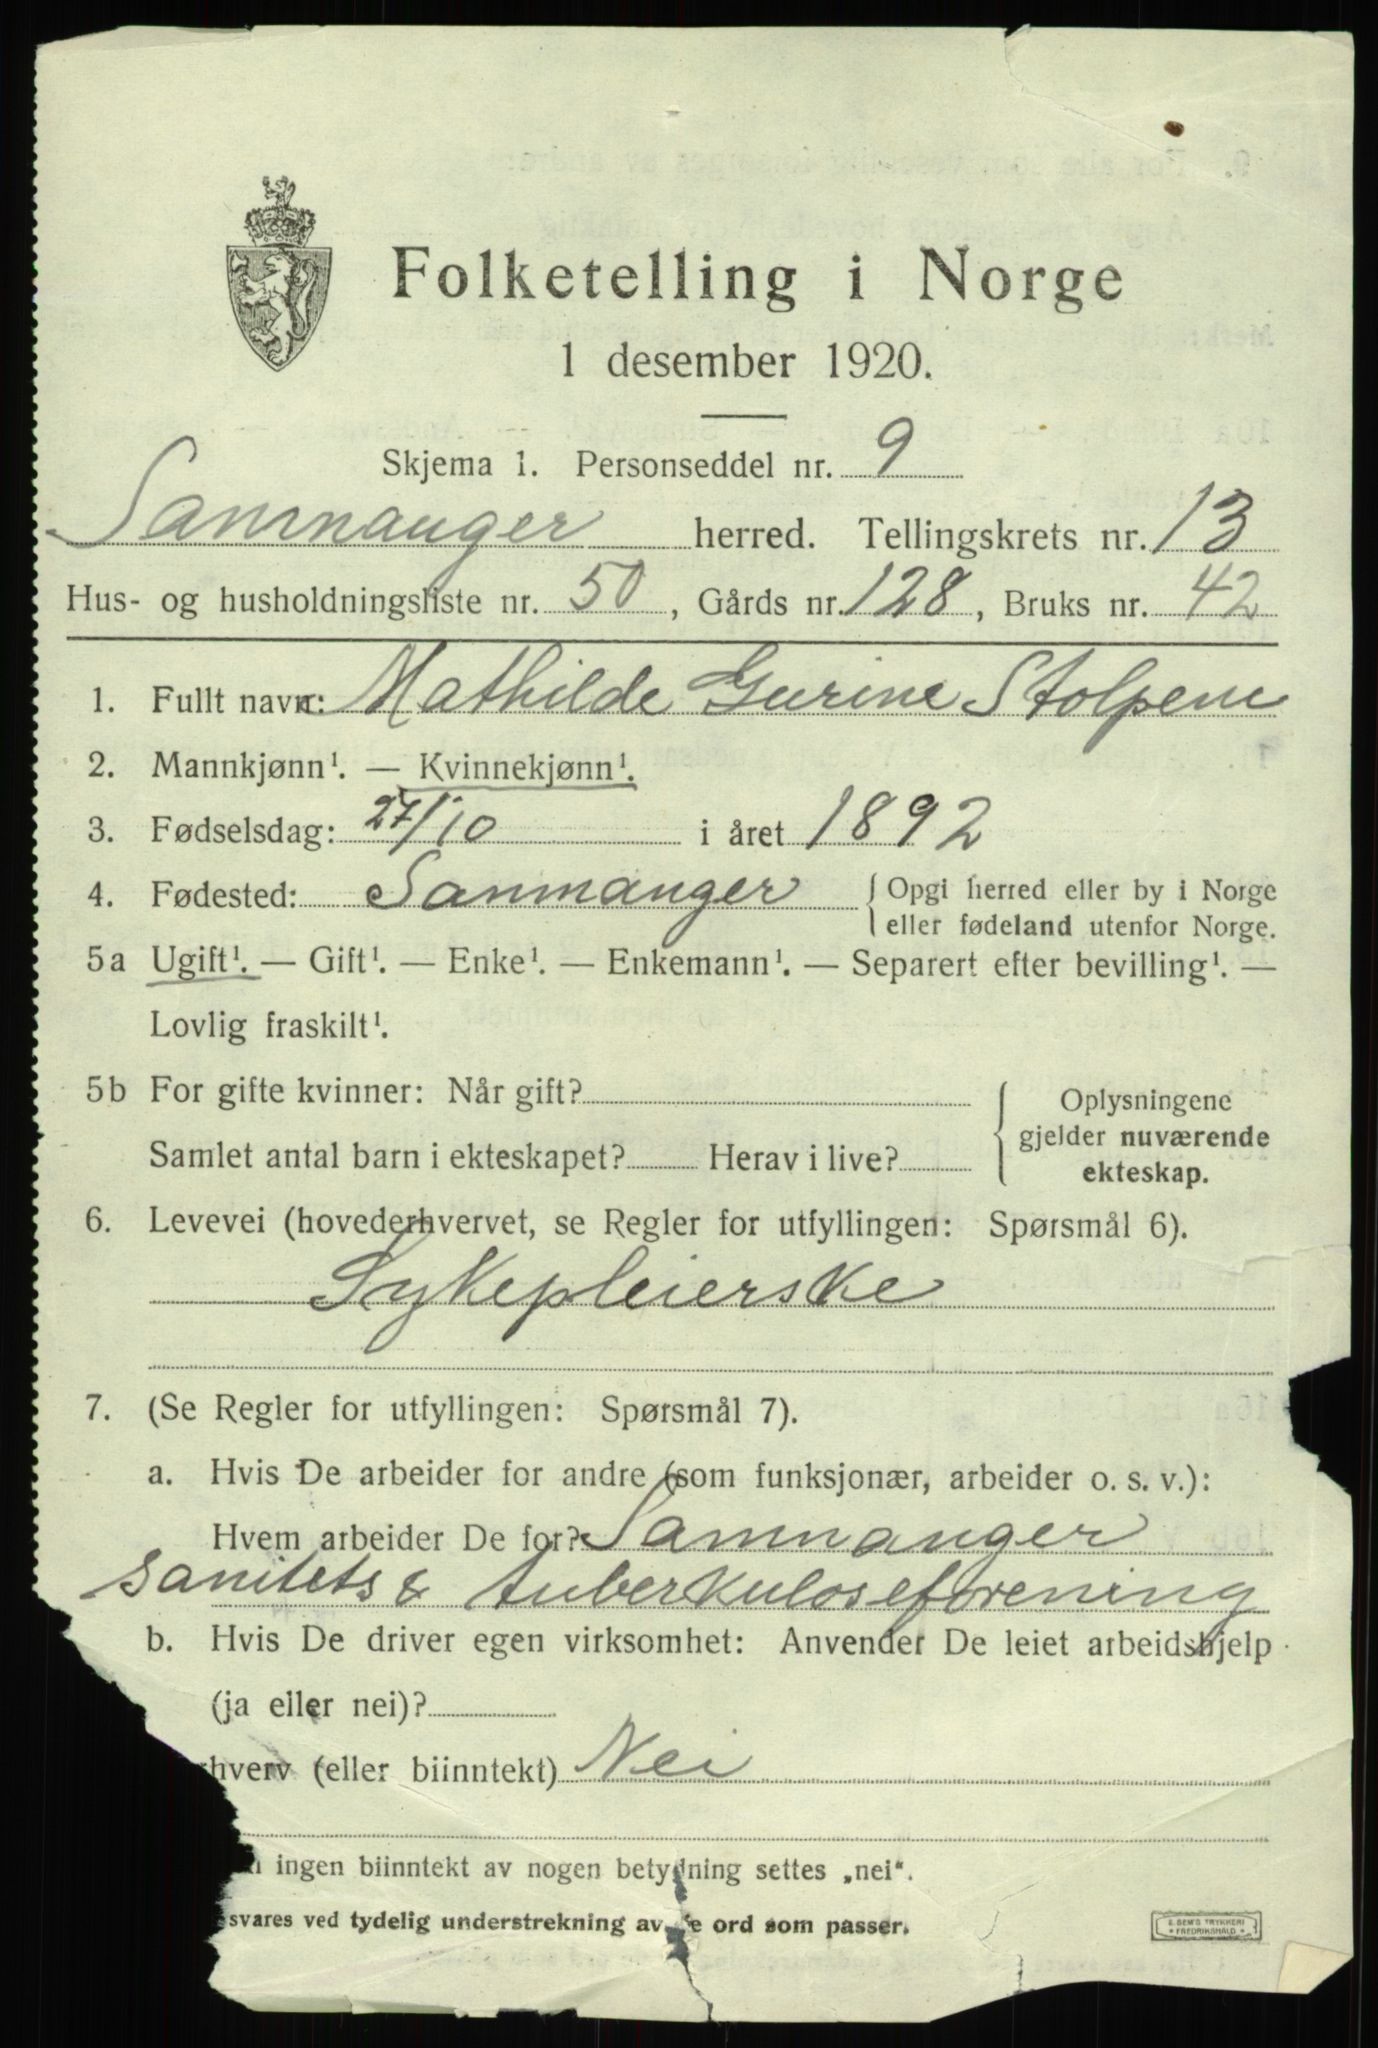 Folketelling i Norge
1 desember 1920.
Skjema 1. Personseddel nr. 9
Samnanger herred. Tellingskrets nr. 13
Hus- og husholdningsliste nr. 50, Gårds nr. 128, Bruks nr. 42
1. Fullt navn: Mathilde Gurine Stolpene
2. Mannkjønn¹. — Kvinnekjønn¹.
3. Fødselsdag: 27/10 i året 1892
4. Fødested: Samnanger { Opgi herred eller by i Norge
eller fødeland utenfor Norge.
5a Ugift¹. — Gift¹. — Enke¹. — Enkemann¹. — Separert efter bevilling¹. —
Lovlig fraskilt¹.
5b For gifte kvinner: Når gift?
Samlet antal barn i ekteskapet? Herav i live?
Oplysningene
gjelder nuværende
ekteskap.
6. Levevei (hovederhvervet, se Regler for utfyllingen: Spørsmål 6).
Sykepleierske
7. (Se Regler for utfyllingen: Spørsmål 7).
a. Hvis De arbeider for andre (som funksjonær, arbeider o. s. v.):
Hvem arbeider De for? Samnanger
sanitets & tuberkuloseforening
b. Hvis De driver egen virksomhet: Anvender De leiet arbeidshjelp
(ja eller nei)?
rhverv (eller biinntekt) Nei
ingen biinntekt av nogen betydning settes „nei“.
svares ved tydelig understrekning av de ord som passer.
E. SEM'S TRYKKERI
FREDRIKSHALD